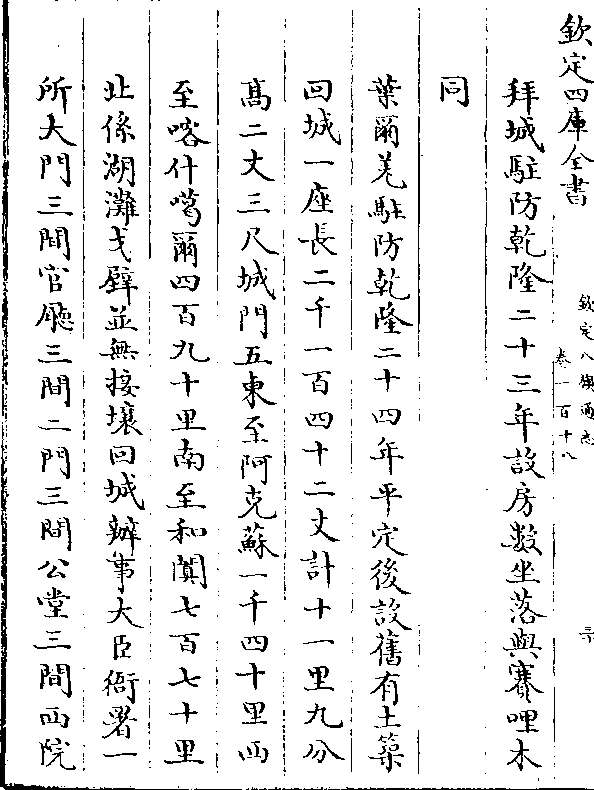 欽定四庫全書
欽定八旗通志
卷一百十八
三十
拜城駐防乾隆二十三年設房數坐落與賽哩木
同
葉爾羌駐防乾隆二十四年平定後設舊有土築
回城一座長二千一百四十二丈計十一里九分
高二丈三尺城門五東至阿克蘇一千四十里西
至喀什噶爾四百九十里南至和闐七百七十里
北係湖灘戈壁並無接壤回城辦事大臣衙署一
所大門三間官廳三間二門三間公堂三間西院